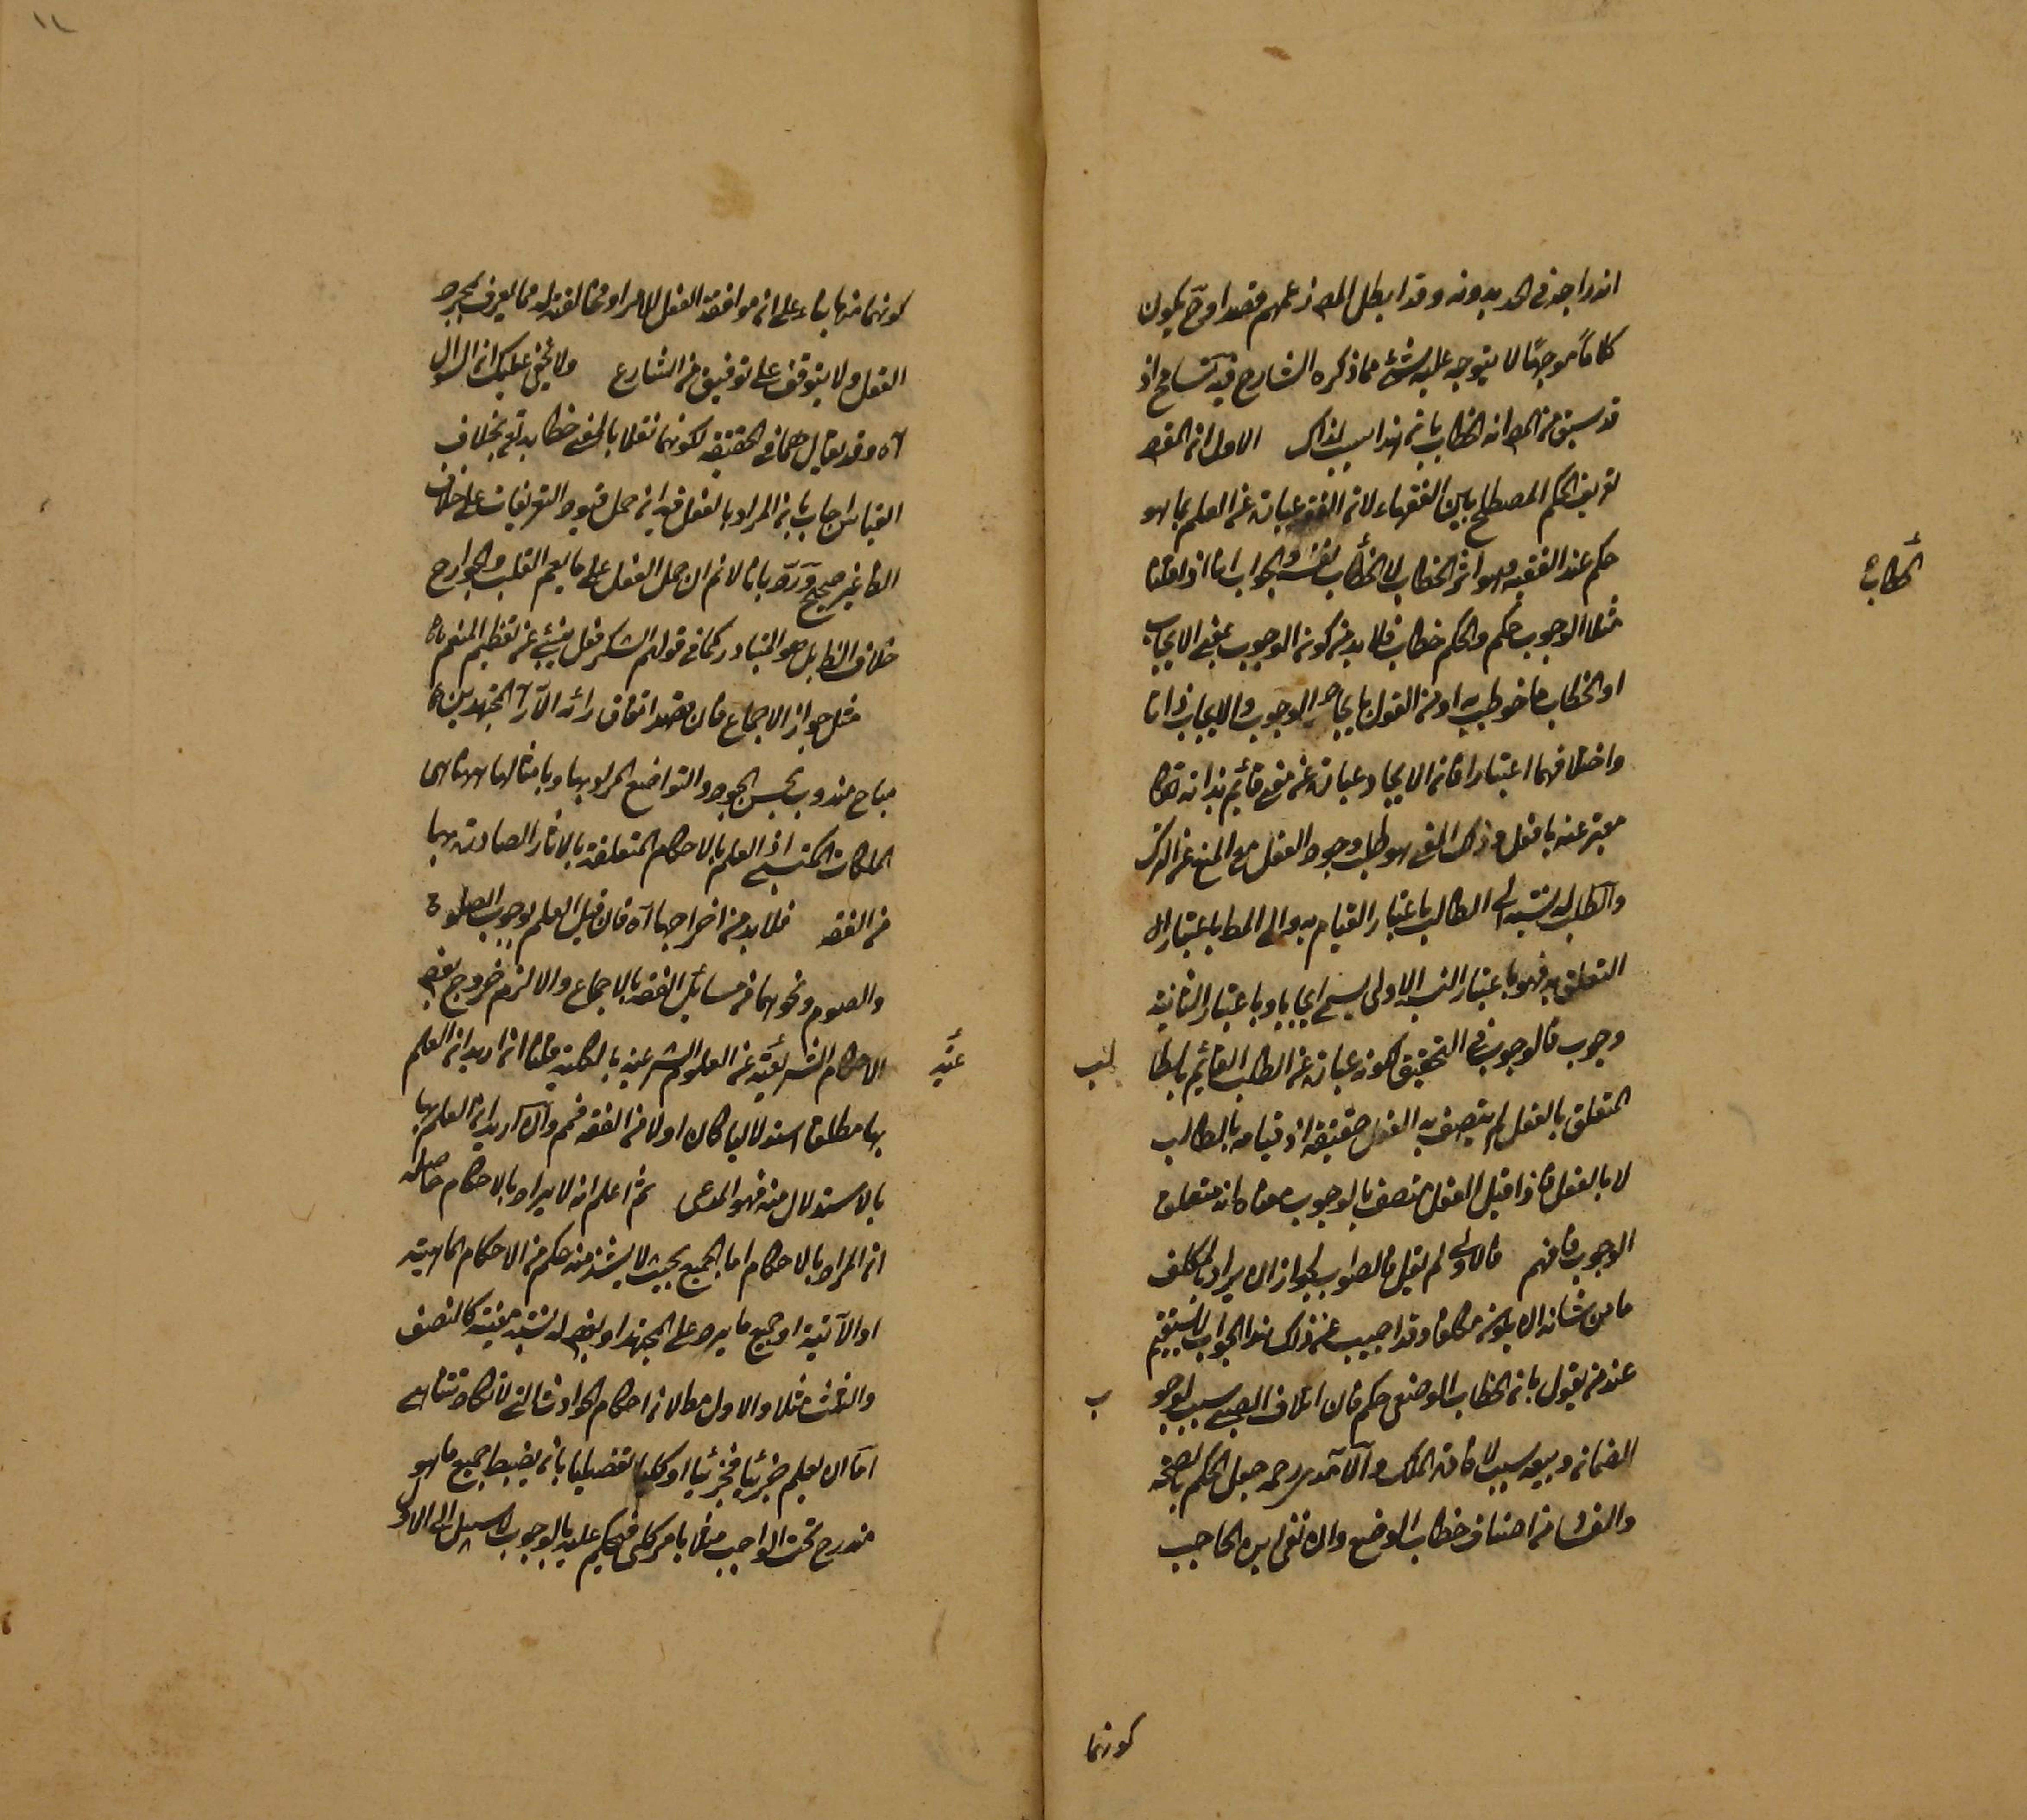 اندراجه في الحد بدونه وقد ابطل المص زعمهم قصدا وح يكون
كلاماً موجهًا لا يتوجه عليه شئ مما ذكره الشارح فيه تسامح اذ
قد سبق من المص ان الخطاب بانه هذا سبب لذاك الاول ان المقص
تعريف الحكم المصطلح بين الفقهاء لان الفقه عبارة عن العلم بما هو
حكم عند الفقيه وهو اثر الخطاب لا الخطاب نفسه والجواب انا اذا قلنا
الخطاب
مثلا الوجوب حكم والحكم خطاب فلا بد من كون الوجوب بمعنى الايجاب
او الخطاب ما خوطب به او من القول باتحاد الوجوب والايجاب ذاتا
واختلافهما اعتبارا فان الايجاد عبارة عن معنى قائم بذاته تعالى
معبر عنه بافعل وذلك المعنى هو طلب وجود الفعل مع المنع عن الترك
والطلب له نسبة الى الطالب باعتبار القيام به والى المط باعتبار ال
التعلق به فهو باعتبار النسبة الاولى يسمى ايجابا وباعتبار الثانية
وجوب فالوجوب في التحقيق لكونه عبارة عن الطلب القائم بالطا
لب
المتعلق بالفعل لم يتصف به الفعل حقيقة اذ قيامه بالطالب
لا بالفعل فاذا قيل الفعل متصف بالوجوب معناه انه متعلق
الوجوب فافهم فالاولى لم يقل فالصواب لجواز ان يراد بالمكلف
ما من شانه ان يكون مكلفا وقد اجيب عن ذلك هذا الجواب لا يستقيم
عند من يقول بان الخطاب الوضعي حكم فان اتلاف الصبي سبب لوجو
ب
الضمان وبيعه سبب لافادة الملك والآمدي رحمه جعل الحكم بالصحة
والفساد من اصناف خطاب الوضع وان نفى ابن الحاجب
كونهما
كونهما منها بناء على ان موافقة الفعل للامر او مخالفته له مما يعرف بمجرد
العقل ولا يتوقف على توقيف من الشارع ولا يخفى عليك ان السؤال
آه وقد يقال هما في الحقيقة لكونهما نقلا بالمعنى خطابه تعالى بخلاف
القياس اجاب بان المراد بالفعل فيه ان حمل قيود التعريفات على خلاف
الظ غير صحيح ورد بانا لا نم ان حمل الفعل على ما يعم القلب والجوارح
خلاف الظ بل هو المتبادر كما في قولهم الشكر فعل ينبئ عن تعظيم المنعم آه
مثل جواز الاجماع فان قصد اتفاق رأيه الآراء المجتهدين آه
مباح مندوب بحسن الجود والتواضع المراد بهما وبامثالهما ههنا هى
الملكات المكتسبة اذ العلم بالاحكام المتعلقة بالآثار الصادرة بهما
من الفقه فلا بد من اخراجها آه فان قيل العلم بوجوب الصلوة
والصوم ونحوهما من مسائل الفقه بالاجماع والا لزم خروج بعض
الاحكام الشريعية عن العلوم الشرعية بالكلية قلنا ان اريد ان العلم
عية
بها مطلقا استدلاليا كان او لا من الفقه فمم وان اريد ان العلم بها
بالاستدلال منه فهو المدعى ثم اعلم انه لا يراد بالاحكام حاصله
ان المراد بالاحكام اما الجميع بحيث لا يشذ منه حكم من الاحكام الماضية
او الآتية او جميع ما يرد على المجتهد او بعض له نسبة معينة كالنصف
والثلث مثلا والاول بط لان احكام الحوادث التى لا تكاد تتناهى
اما ان يعلم جزئيا فجزئيا او كليا تفصيليا بان يضبط جميع ما هو
مندرج تحت الواجب مثلا بامر كلى فيحكم عليه بالوجوب لا سبيل الى الاول